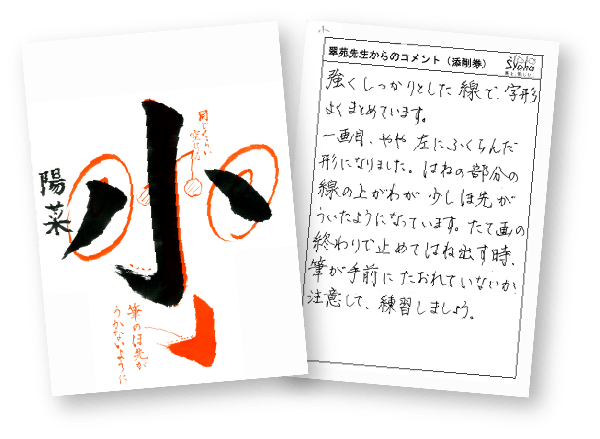 小
陽菜
同じくらい
空ける
筆のほ先が
うかないように
小
翠苑先生からのコメント(添削券)
強くしっかりとした線で、字形
よくまとめています。
一画目、やや左にふくらんだ
形になりました。はねの部分の
線の上がわが少しほ先が
ういたようになっています。たて画の
終わりで止めてはね出す時、
筆が手前にたおれていないか、
注意して、練習しましょう。